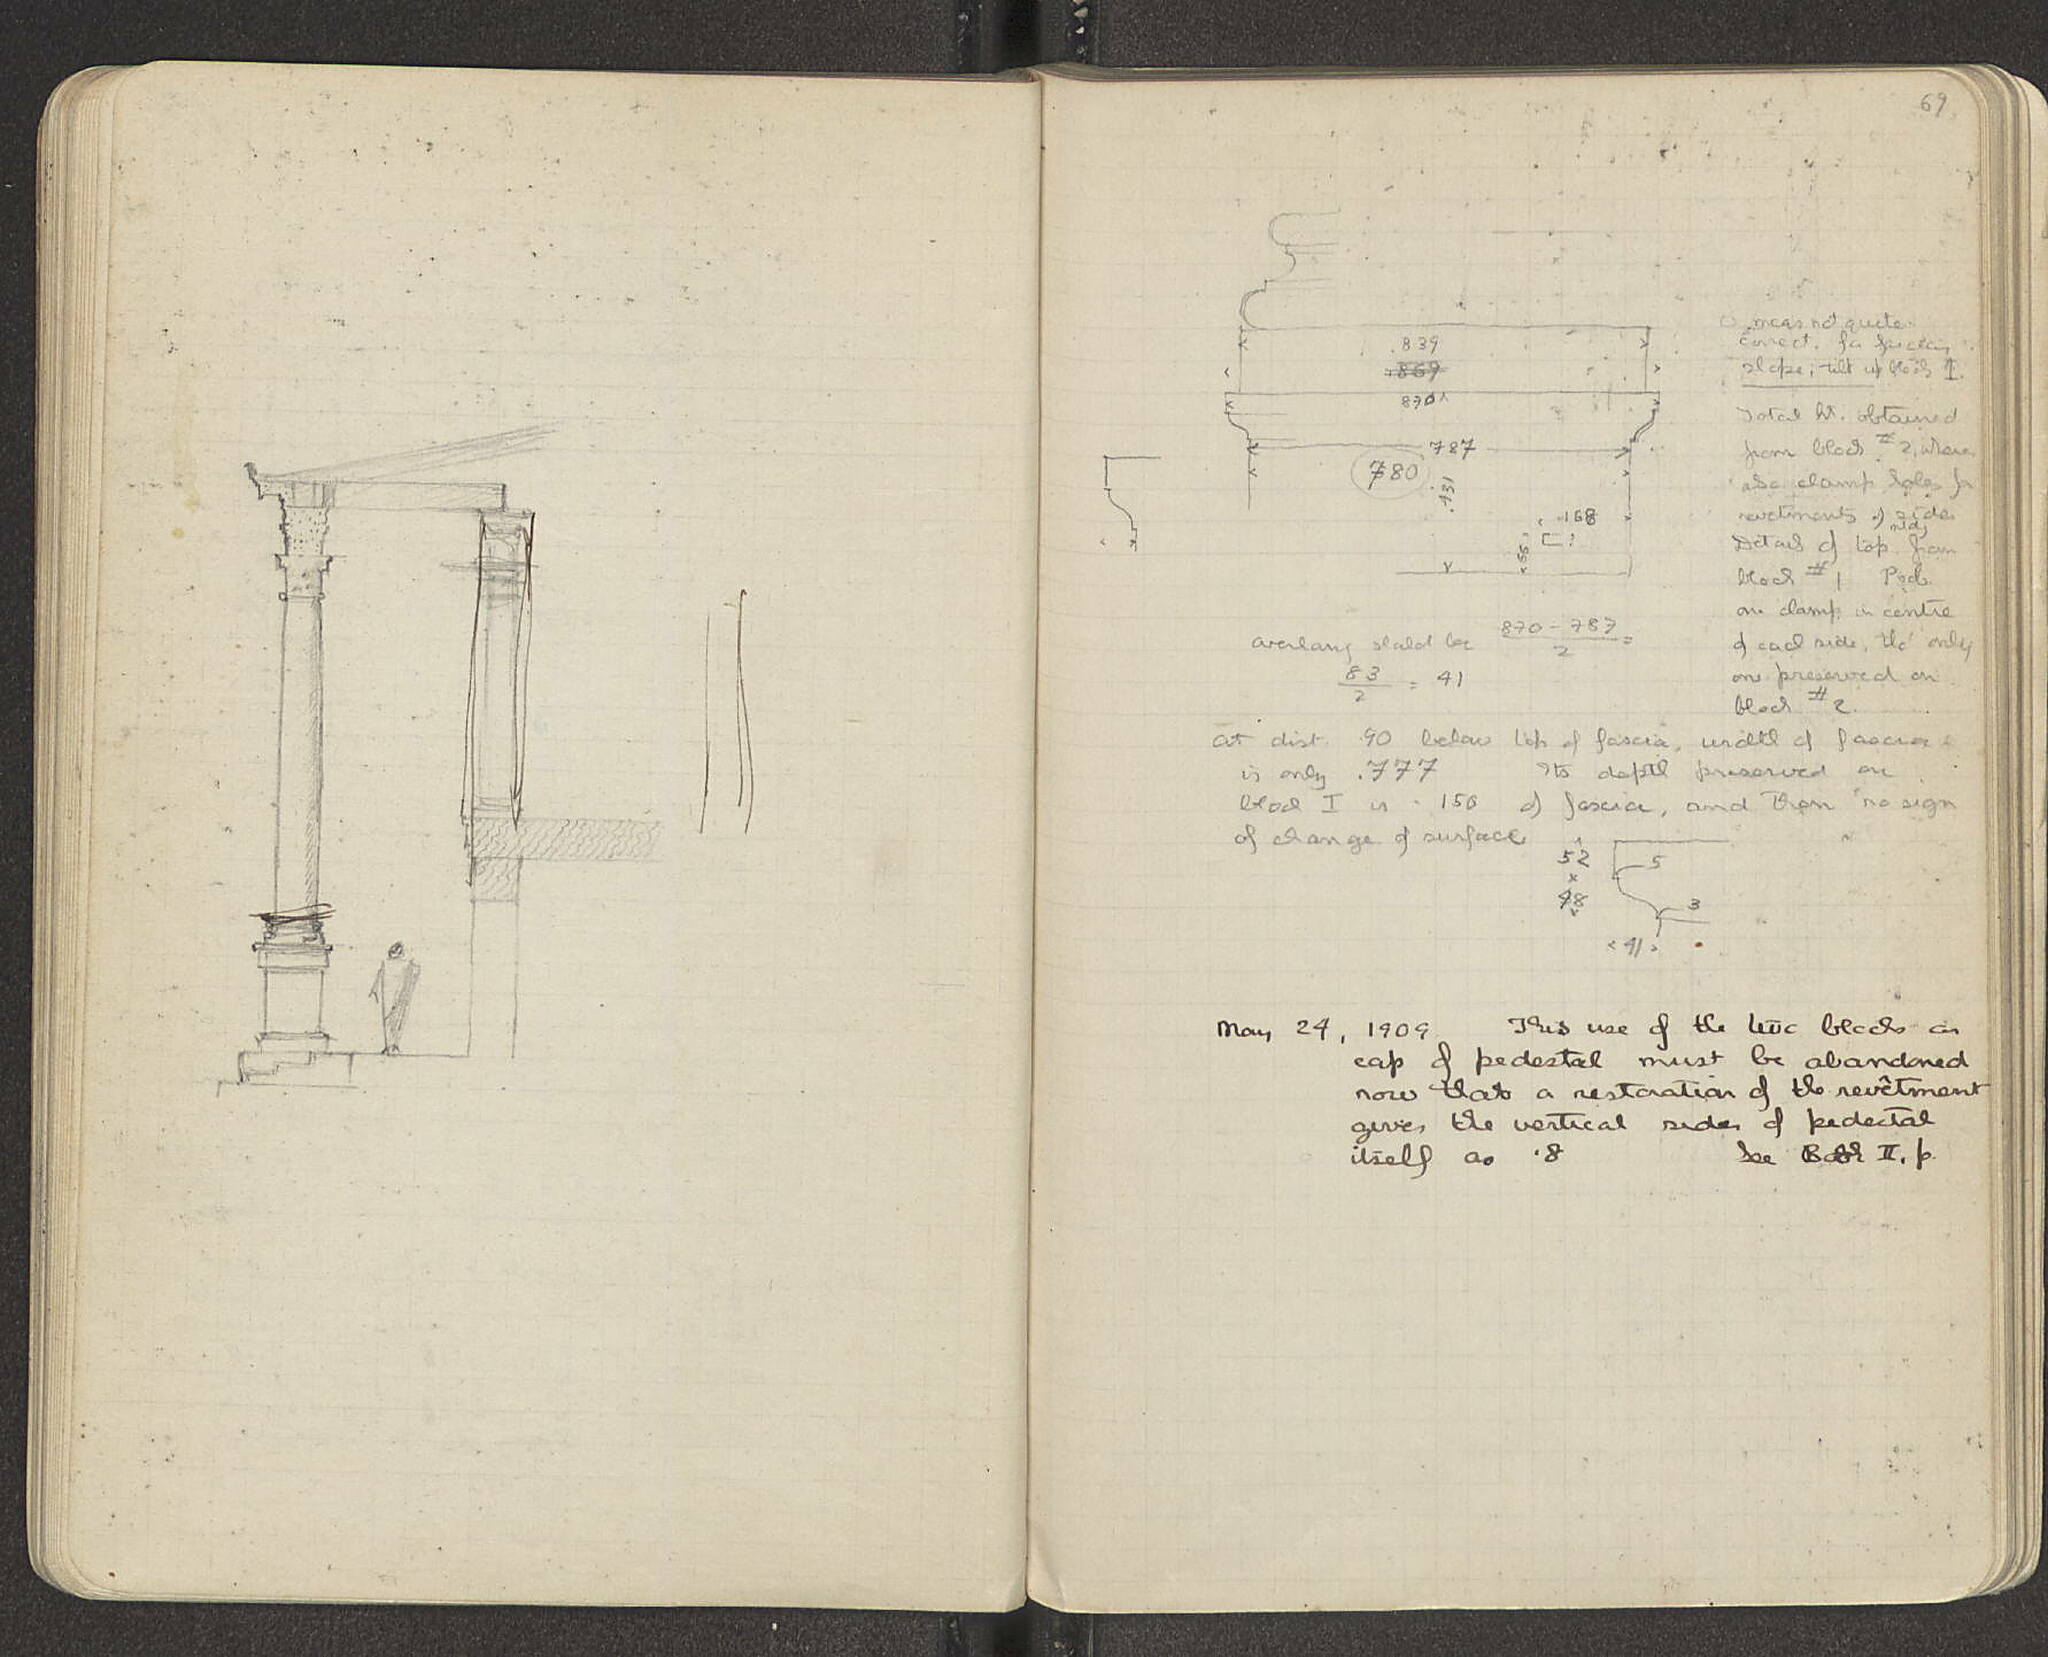 69
.839
.869
870
787
780
.131
.168
.55
meas not quite
correct. for
slope; tilt up block I.
Total ht. obtained
from block #2, where
also clamp holes for
revetments of sides
Details of top mldg from
block #1 Prob.
one clamp in centre
of each side, tho' only
one preserved on
block #2.
overhang should be 870 - 787 / 2 =
83 / 2 = 41
at dist. .90 below top of fascia, width of fascia
is only .777 Its depth preserved on
block I is .150 of fascia, and then no sign
of change of surface
52
5
48
3
41
May 24, 1909 This use of the two blocks as
cap of pedestal must be abandoned
now that a restoration of the revêtment
gives the vertical sides of pedestal
itself as .8 See Book II, p.